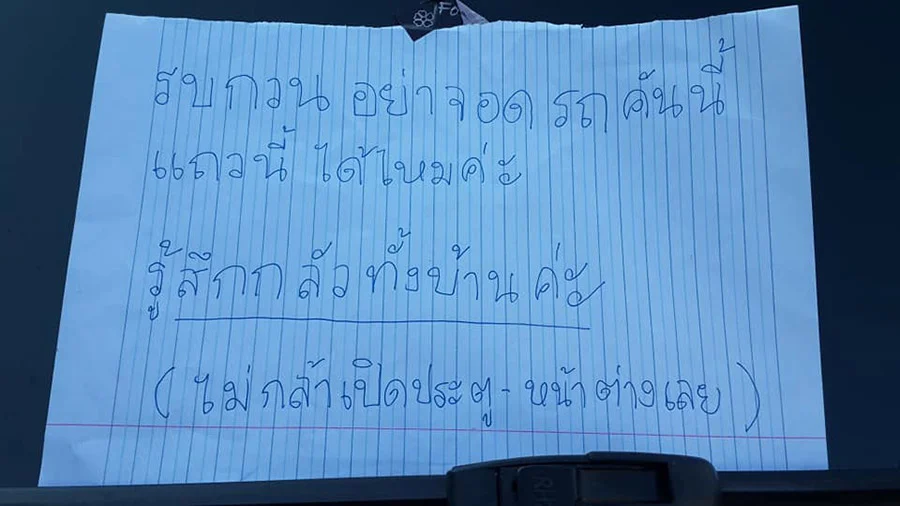 รบกวน อย่าจอด รถคันนี้
แถวนี้ ได้ไหมค่ะ
รู้สึกกลัวทั้งบ้านค่ะ
(ไม่กล้าเปิดประตู - หน้าต่างเลย)